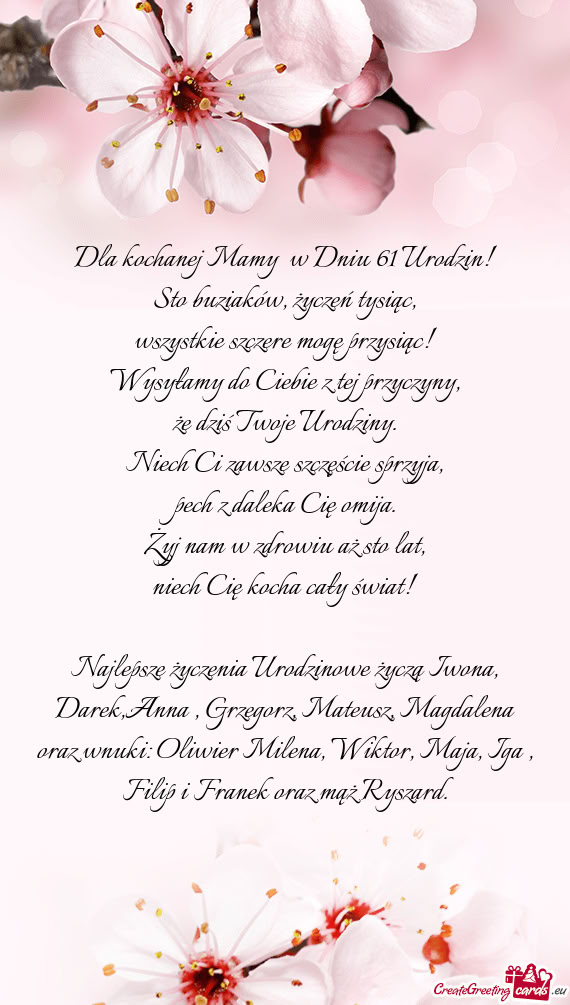 Dla kochanej Mamy w Dniu 61 Urodzin!
Sto buziaków, życzeń tysiąc,
wszystkie szczere mogę przysiąc!
Wysyłamy do Ciebie z tej przyczyny,
że dziś Twoje Urodziny.
Niech Ci zawsze szczęście sprzyja,
pech z daleka Cię omija.
Żyj nam w zdrowiu aż sto lat,
niech Cię kocha cały świat!
Najlepsze życzenia Urodzinowe życzą Iwona,
Darek,Anna , Grzegorz, Mateusz, Magdalena
oraz wnuki: Oliwier Milena, Wiktor, Maja, Iga ,
Filip i Franek oraz mąż Ryszard.
CreateGreeting cards .eu